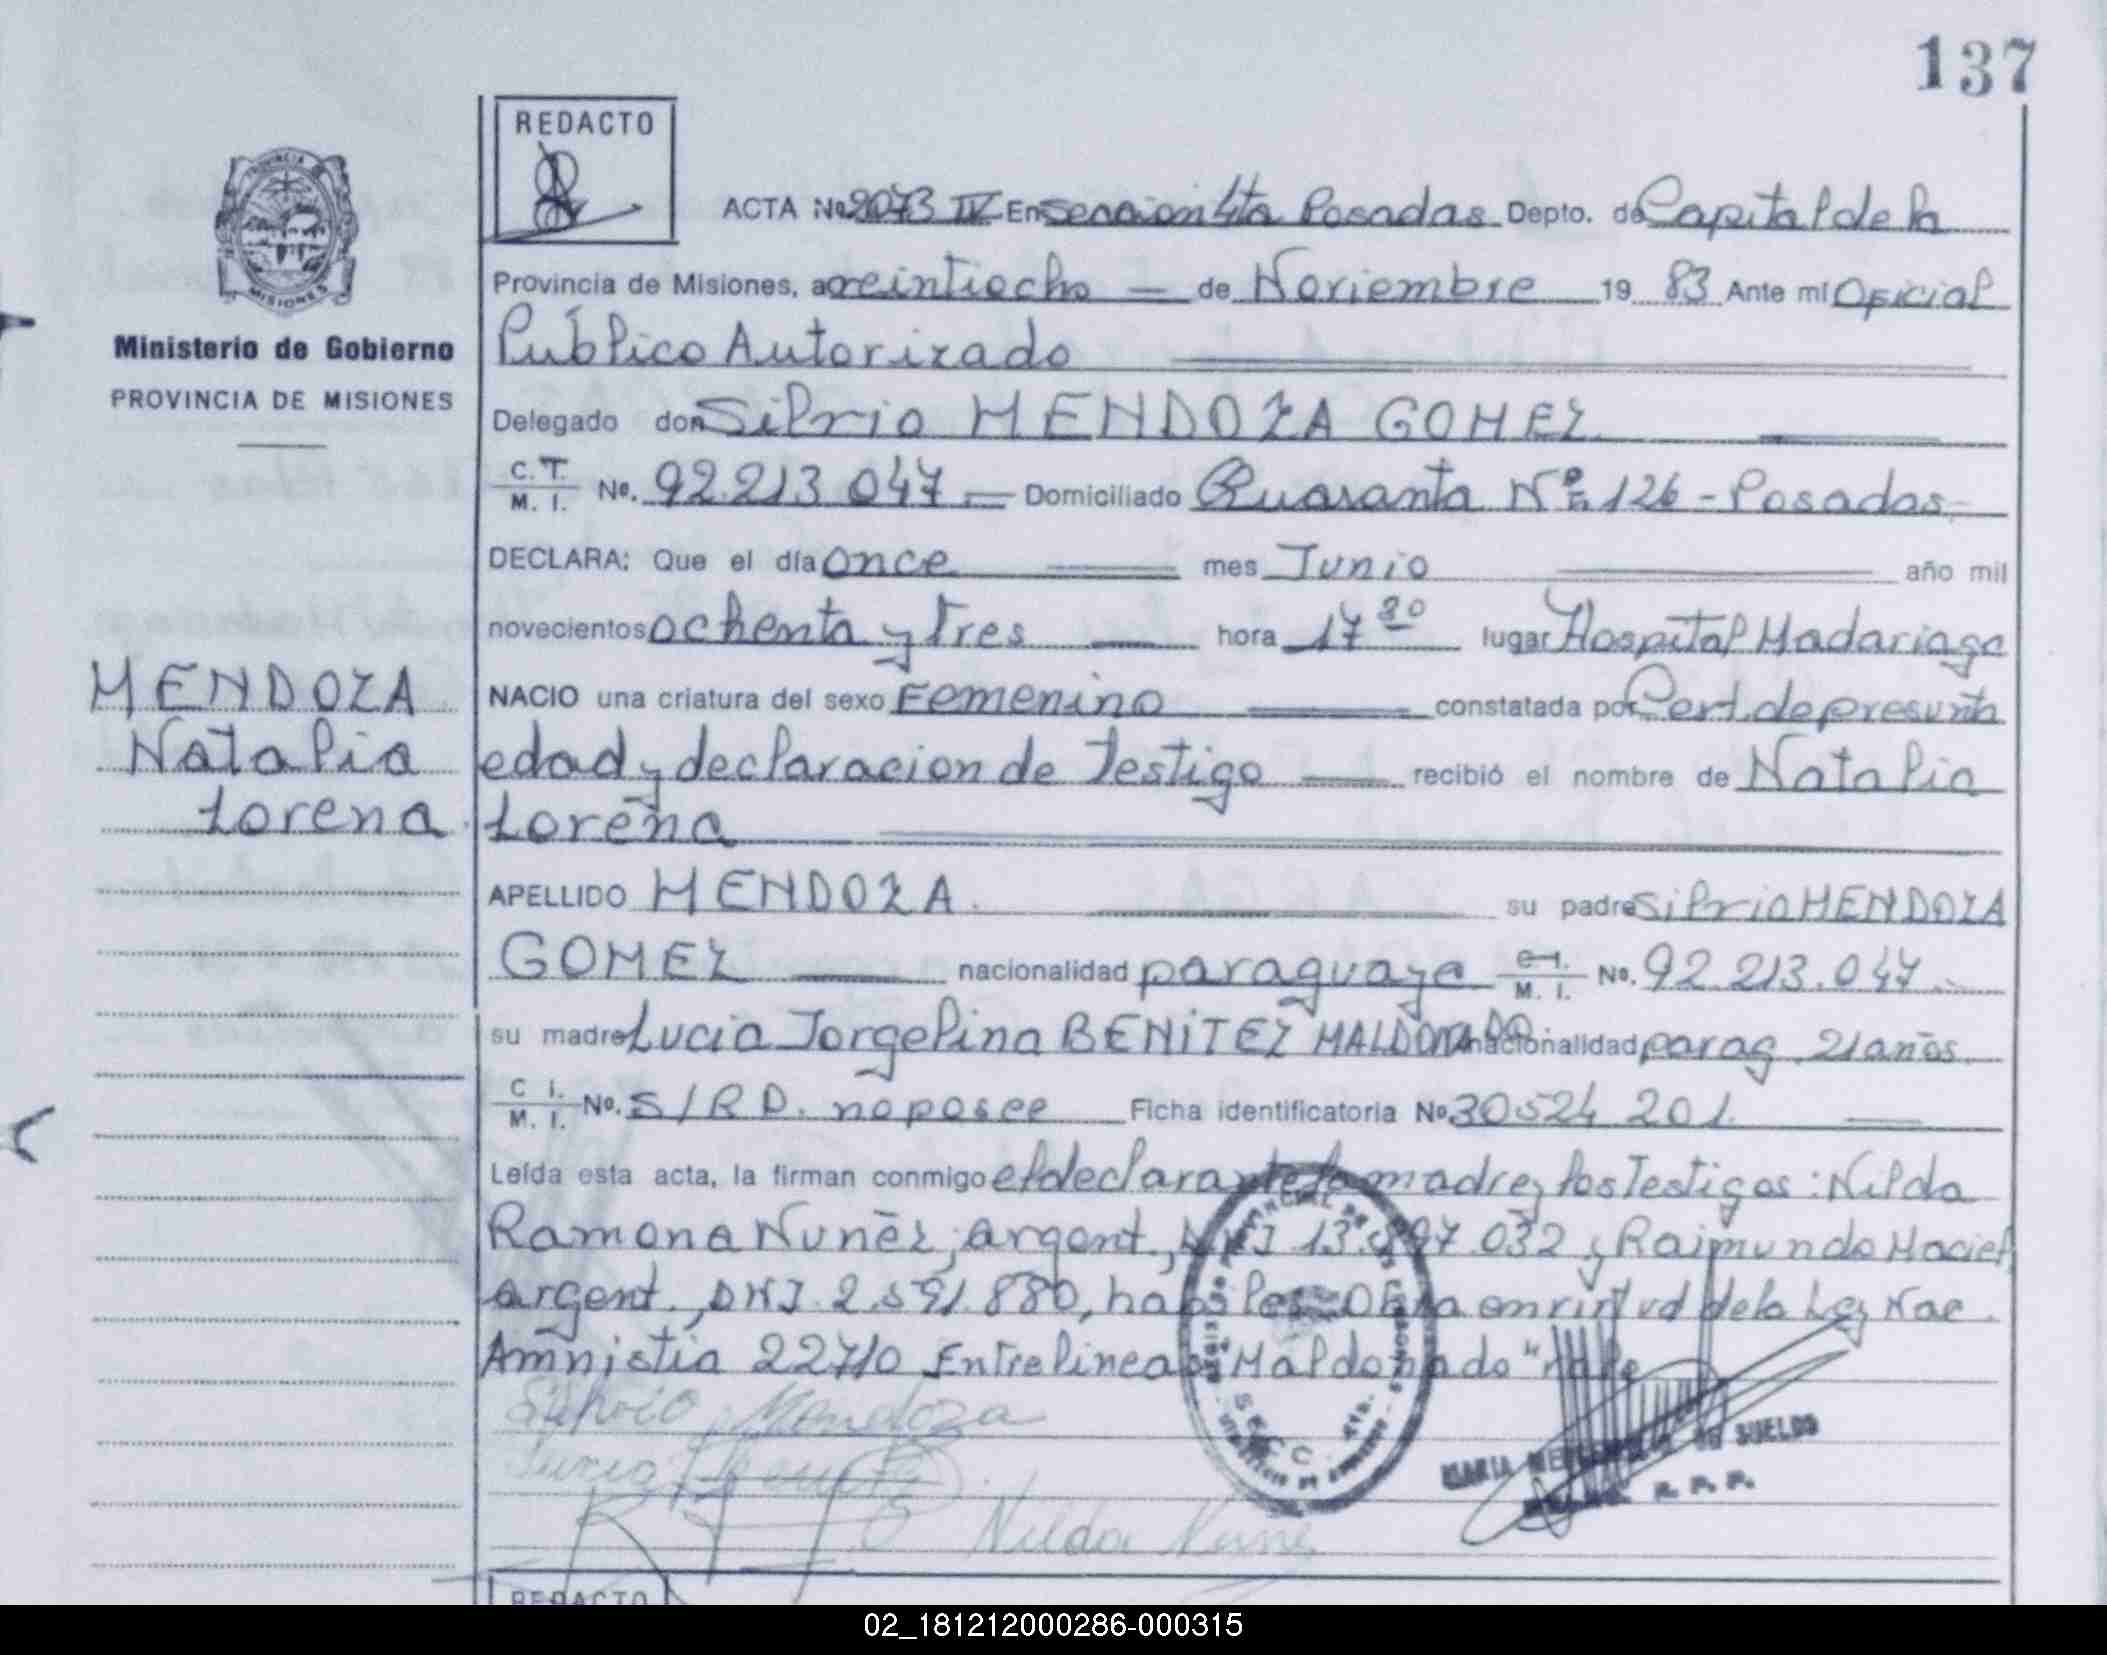 137
REDACTO
ACTA Nº 2073 IV En seccion 4ta Posadas Depto. de Capital de la
Provincia de Misiones, a veintiocho — de Noviembre 19 83 Ante mí Oficial
Ministerio de Gobierno
Público Autorizado
PROVINCIA DE MISIONES
Delegado don Silvio MENDOZA GOMEZ
C.T. M. I. Nº. 92.213.047 — Domiciliado Cuaranta Nº 126 - Posadas -
DECLARA: Que el día once mes Junio año mil
novecientos ochenta y tres — hora 17 30 lugar Hospital Madariaga
MENDOZA
NACIO una criatura del sexo Femenino constatada por Cert. de presunta
Natalia
edad y declaracion de Testigo — recibió el nombre de Natalia
Lorena
Lorena
APELLIDO MENDOZA su padre Silvio MENDOZA
GOMEZ — nacionalidad paraguaya C.I. M. I. Nº. 92.213.047
su madre Lucia Jorgelina BENITEZ MALDONADO nacionalidad parag. 21 años.
C I. M. I. Nº. S/R D. no posee Ficha identificatoria Nº 30524 201. —
Leída esta acta, la firman conmigo el declarante la madre y los Testigos: Nilda
Ramona Nuñez, argent, DNI 13. 032 y Raimundo Maciel
argent., DNI. 2.591.880, habiles. Obra en virtud de la Ley Nac.
Amnistia 22710 Entrelineas "Maldonado" Vale
Silvio Mendoza
Nilda Nuñe
SECC. 4ta.
MARIA DE SUELDO
R. P. P.
REDACTO
02_181212000286-000315